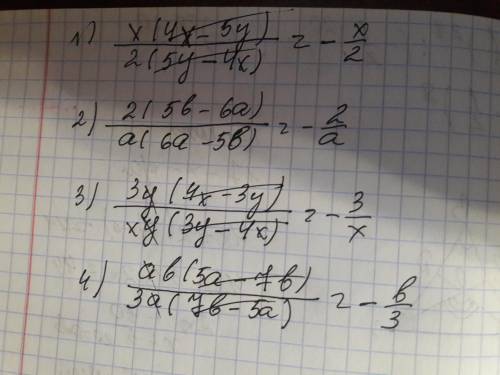 1) x(4x-5y) / 2(5y-4x) = - x/2
2) 2(5b-6a) / a(6a-5b) = - 2/a
3) 3y(4x-3y) / xy(3y-4x) = - 3/x
4) ab(5a-7b) / 3a(7b-5a) = - b/3